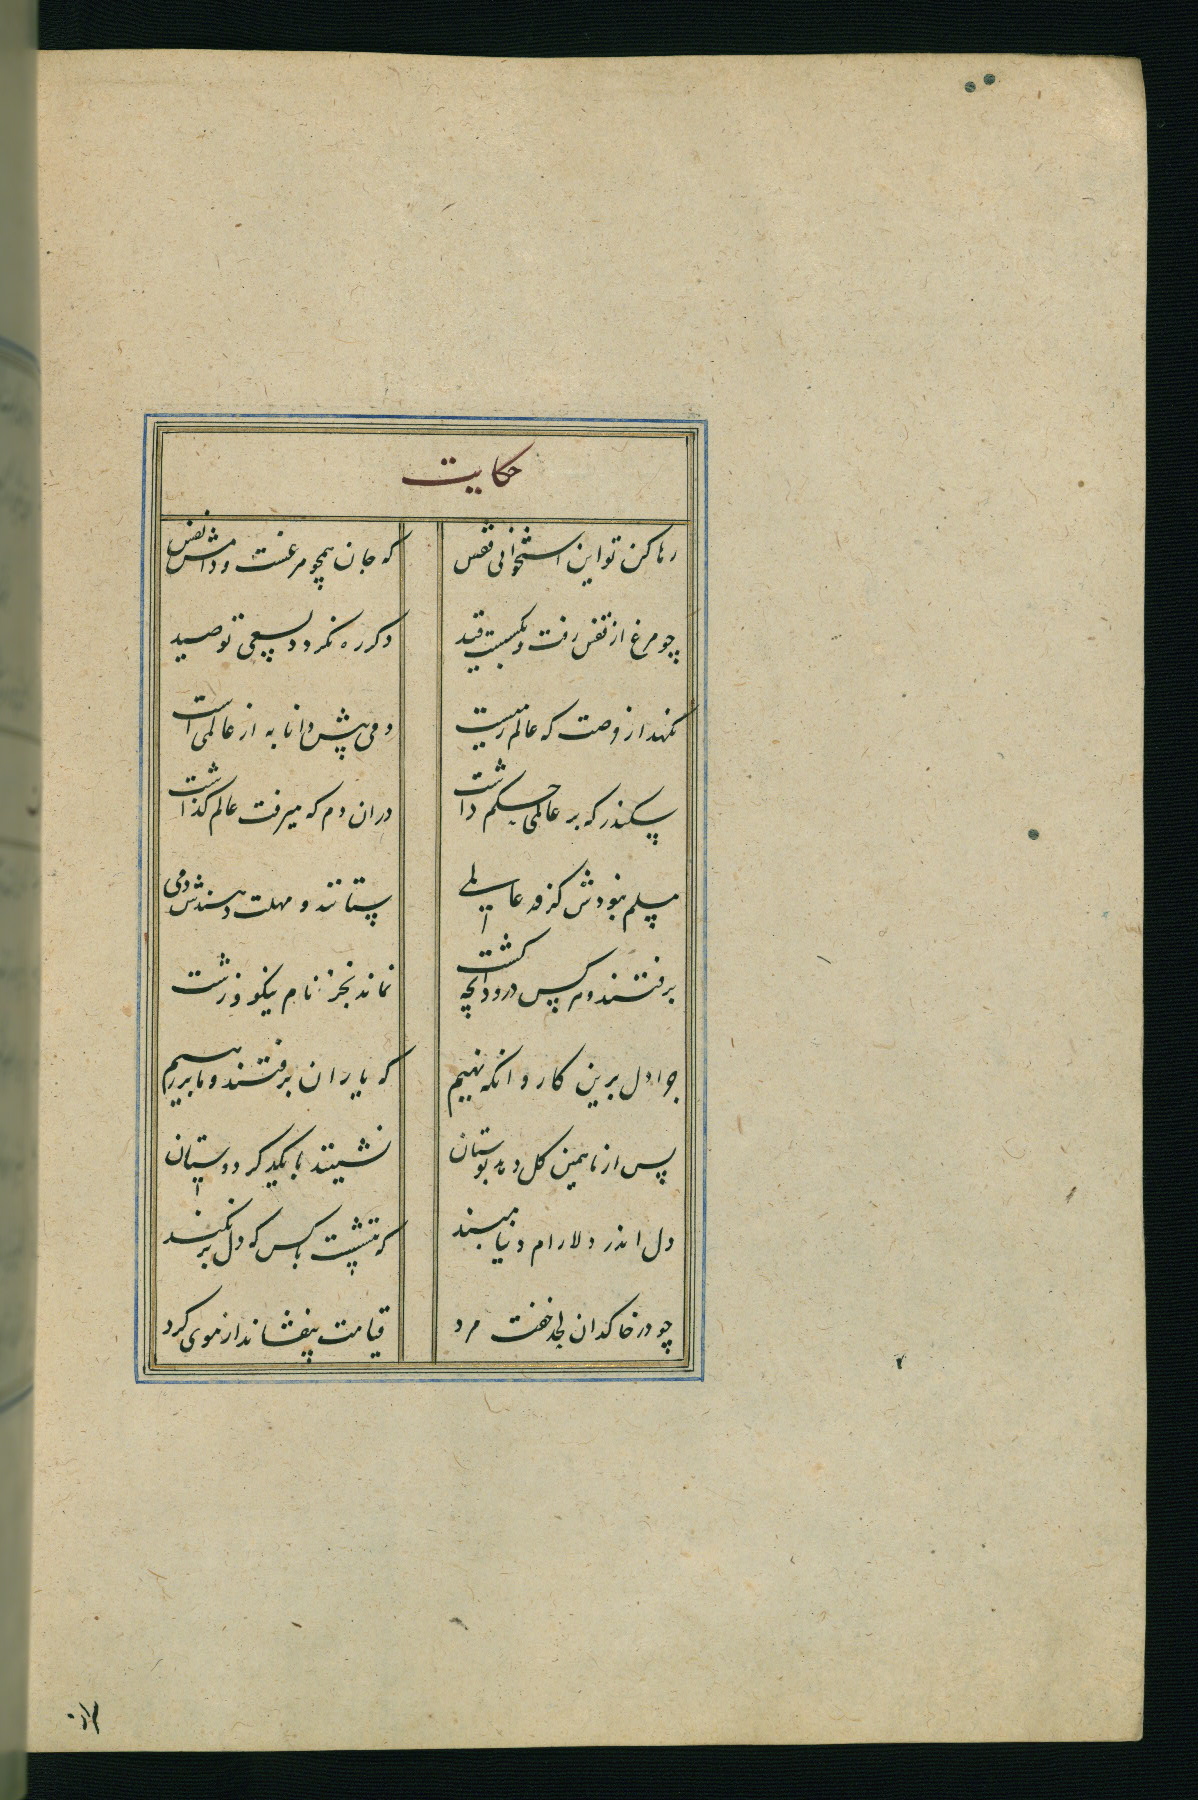 حکایت
رها کن تو این استخوانی قفس که جان همچو مرغست و دامش نفس
چو مرغ از قفس رفت و بگسست قید دگر ره نگردد بسعی تو صید
نگهدار فرصت که عالم دمیست دمی پیش دانا به از عالمی است
سکندر که بر عالمی حکم داشت دران دم که میرفت عالم گذاشت
مسلم نبودش کزو عالمی ستانند و مهلت دهندش دمی
برفتند و هر کس درود آنچه کشت نماند بجز نام نیکو و زشت
چرا دل برین کاروانگه نهیم که یاران برفتند و ما بر رهیم
پس از ما همین گل دمد بوستان نشینند با یکدگر دوستان
دل اندر دلارام دنیا مبند که ننشست با کس که دل بر نکند
چو در خاکدان لحد خفت مرد قیامت بیفشاند از موی گرد